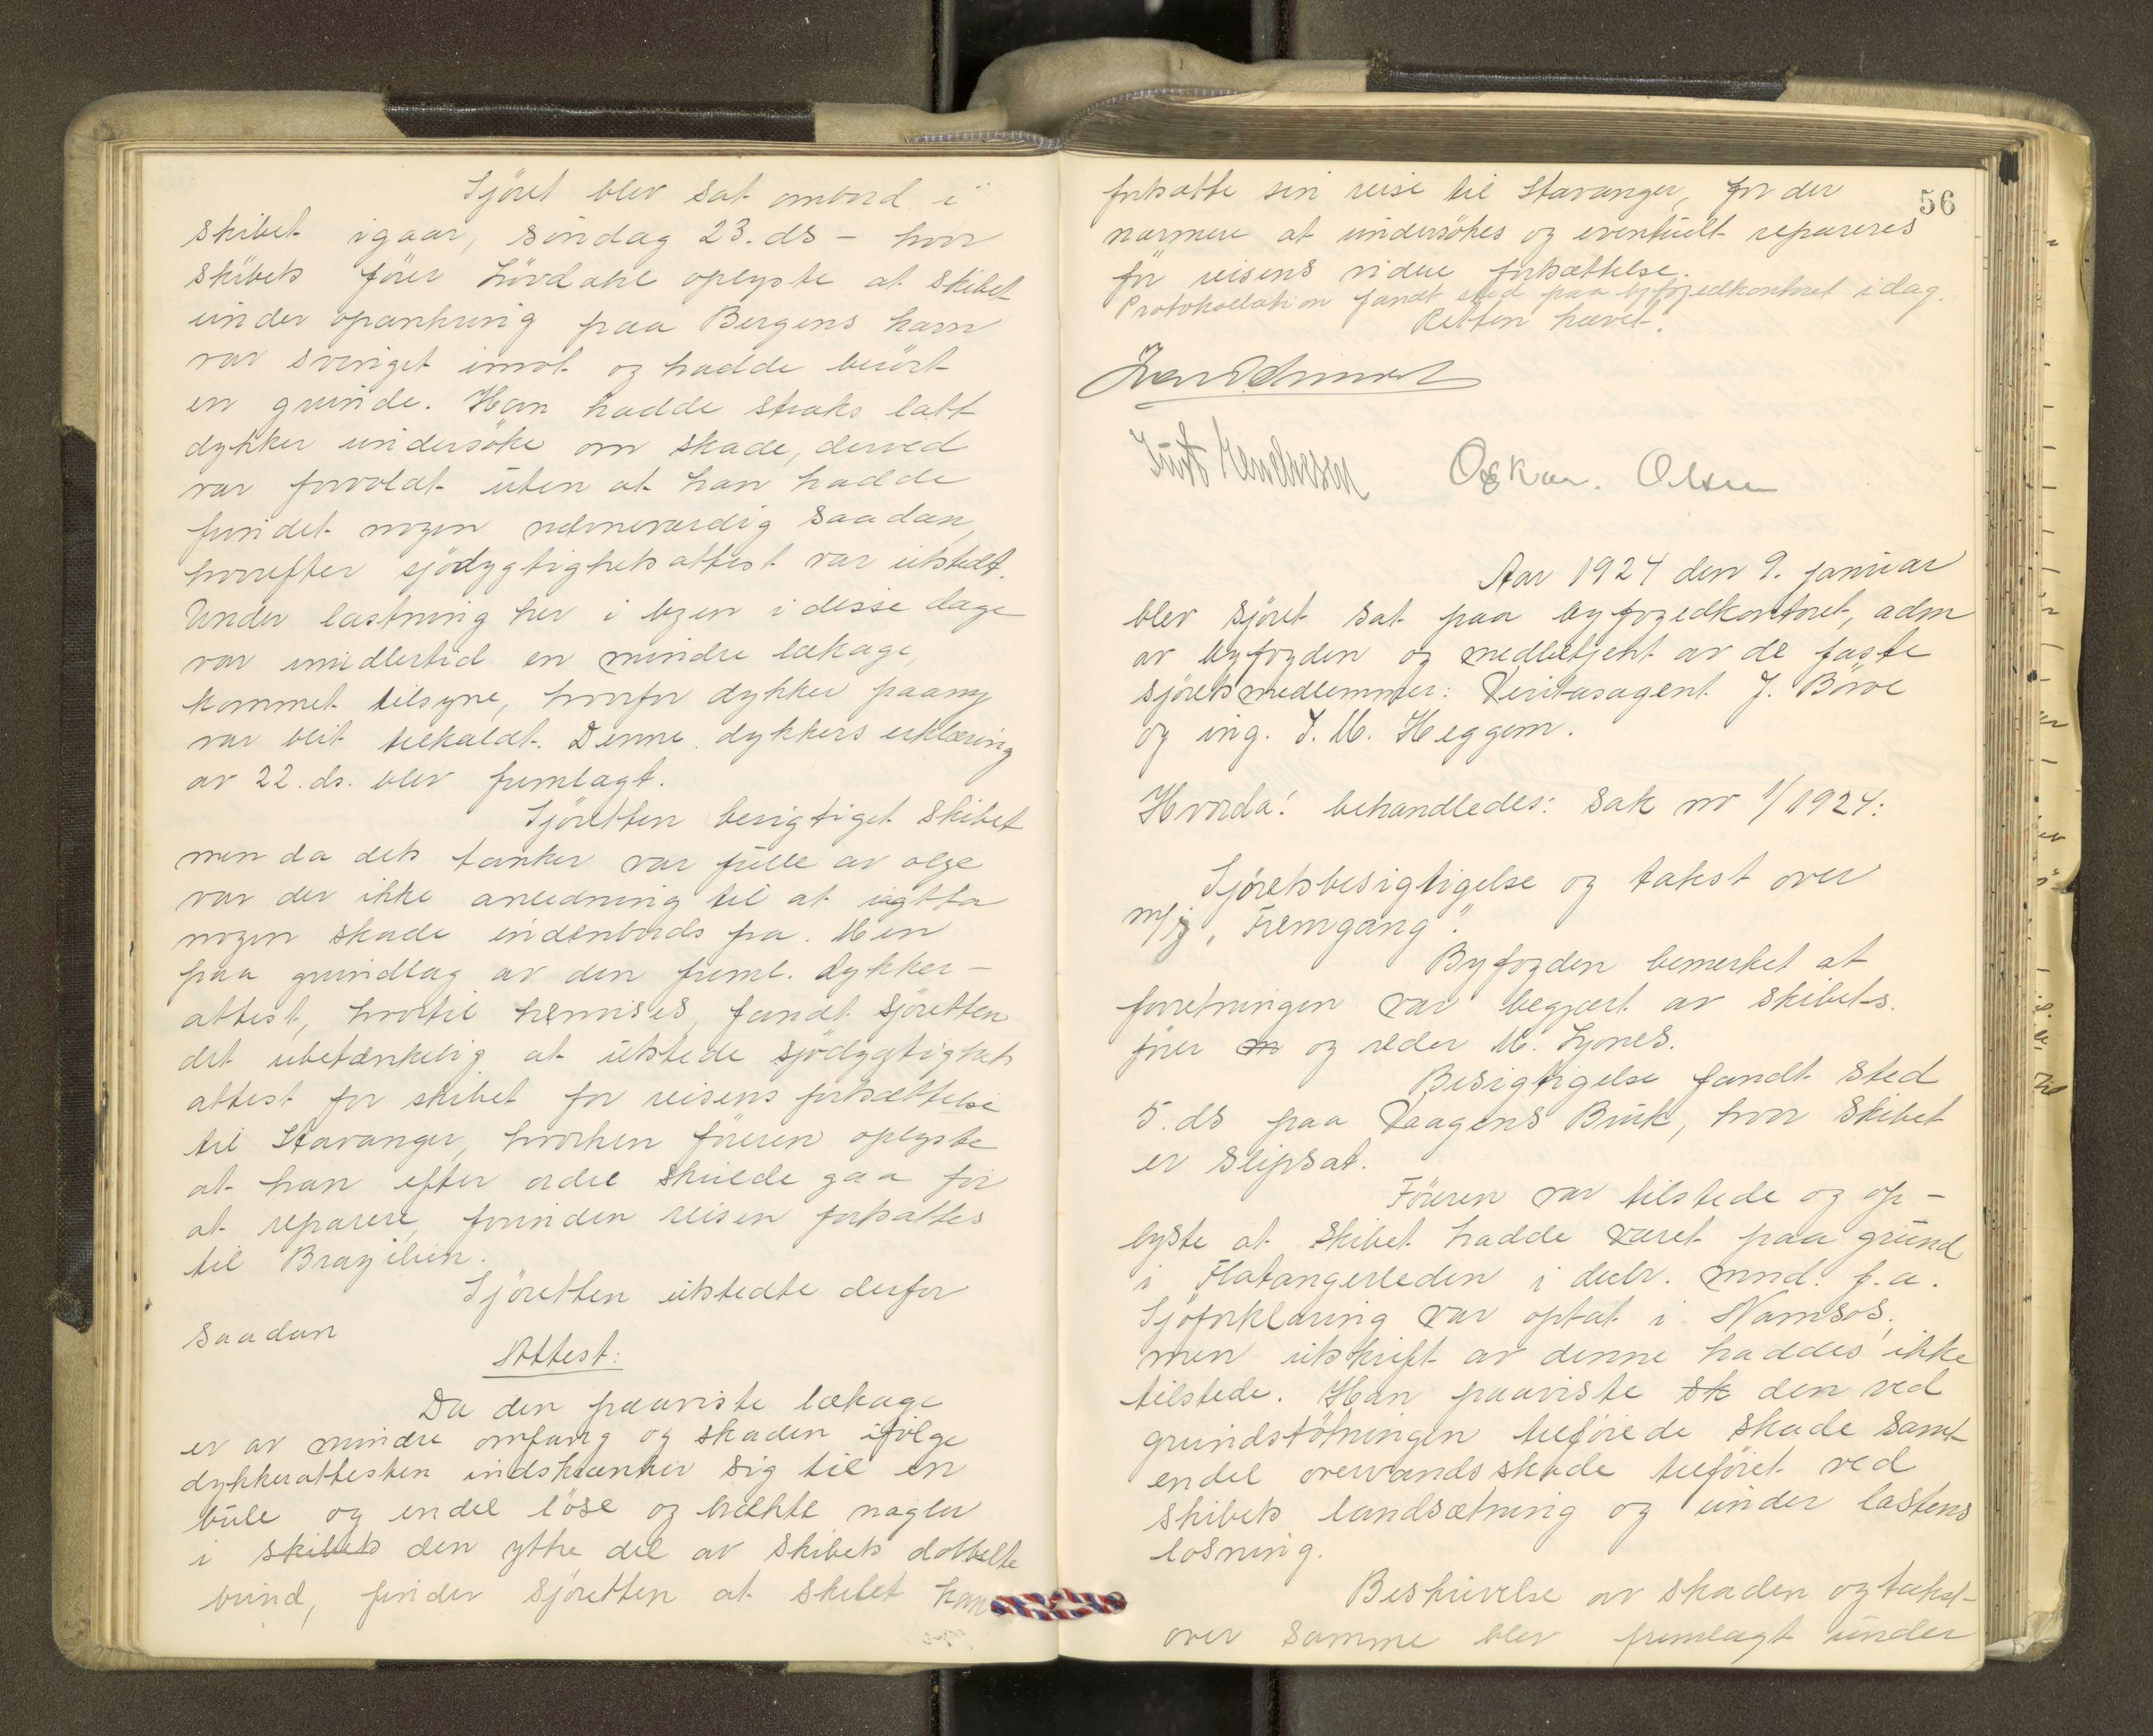 Sjöret blev sat ombord i
skibet igaar, söndag 23. ds - hvor
skibets förer Lövdahl oplyste at skibet
under opankring paa Bergens havn
var svinget imot og hadde berört
en grunde. Han hadde straks latt
dykker undersöke om skade, derved
var forvoldt uten at han hadde
fundet nogen nævneværdig saadan,
hvorefter sjödygtighetsattest var utstedt.
Under lastning her i byen i disse dage
var imidlertid en mindre lækage
kommet tilsyne, hvorfor dykker paany
var blit tilkaldt. Denne dykkers erklæring
av 22. ds. blev fremlagt.
Sjöretten besigtiget skibet
men da dets tanker var fulle av olje
var der ikke anledning til at iagtta
nogen skade indenbords fra. Men
paa grundlag av den freml. dykker-
attest, hvortil henvises, fandt sjöretten
det ubetænkelig at utstede sjödygtighets
attest for skibet for reisens fortsættelse
til Stavanger, hvorhen föreren oplyste
at han efter ordre skulde gaa for
at reparere, forinden reisen fortsattes
til Brazilien.
Sjöretten utstedte derfor
saadan
Attest:
Da den paaviste lækage
er av mindre omfang og skaden ifölge
dykkerattesten indskrænker sig til en
bule og endel löse og brækkte nagler
i skibets den ytre del av skibets dobbelte
bund, finder sjöretten at skibet kan
56
fortsætte sin reise til Stavanger, for der
nærmere at undersökes og eventuelt repareres
för reisens videre fortsættelse.
Protokollation fandt sted paa byfogedkontoret idag.
Retten hævet.
Oskar. Olsen
Aar 1924 den 9. januar
blev sjöret sat paa byfogedkontoret, adm
av byfogden og medbetjent av de faste
sjöretsmedlemmer: Veritasagent J. Böve
og ing. J. M. Heggem.
Hvorda! behandledes: Sak nr 1/1924:
Sjöretsbesigtigelse og takst over
m/j „Fremgang".
Byfogden bemerket at
forretningen var begjært av skibets.
förer m og reder M. Synes.
Besigtigelse fandt sted
5. ds paa Vaagens Bruk, hvor skibet
er slipsat.
Föreren var tilstede og op-
lyste at skibet hadde været paa grund
i Flatangerleden i decbr. mnd. f.a.
Sjöforklaring var optat i Namsos,
men utskrift av denne haddes ikke
tilstede. Han paaviste sk den ved
grundstötningen tilförede skade samt
endel overvandsskade tilföret ved
skibets landsætning og under lastens
losning.
Beskrivelse av skaden og takst
over samme blev fremlagt under